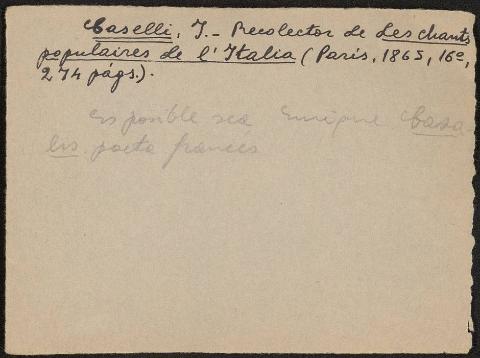 Caselli, J. – Recolector de Les chants
populaires de l'Italia (París, 1865, 16º,
274 págs.).
es posible sea Enrique Casa-
lis poeta francés